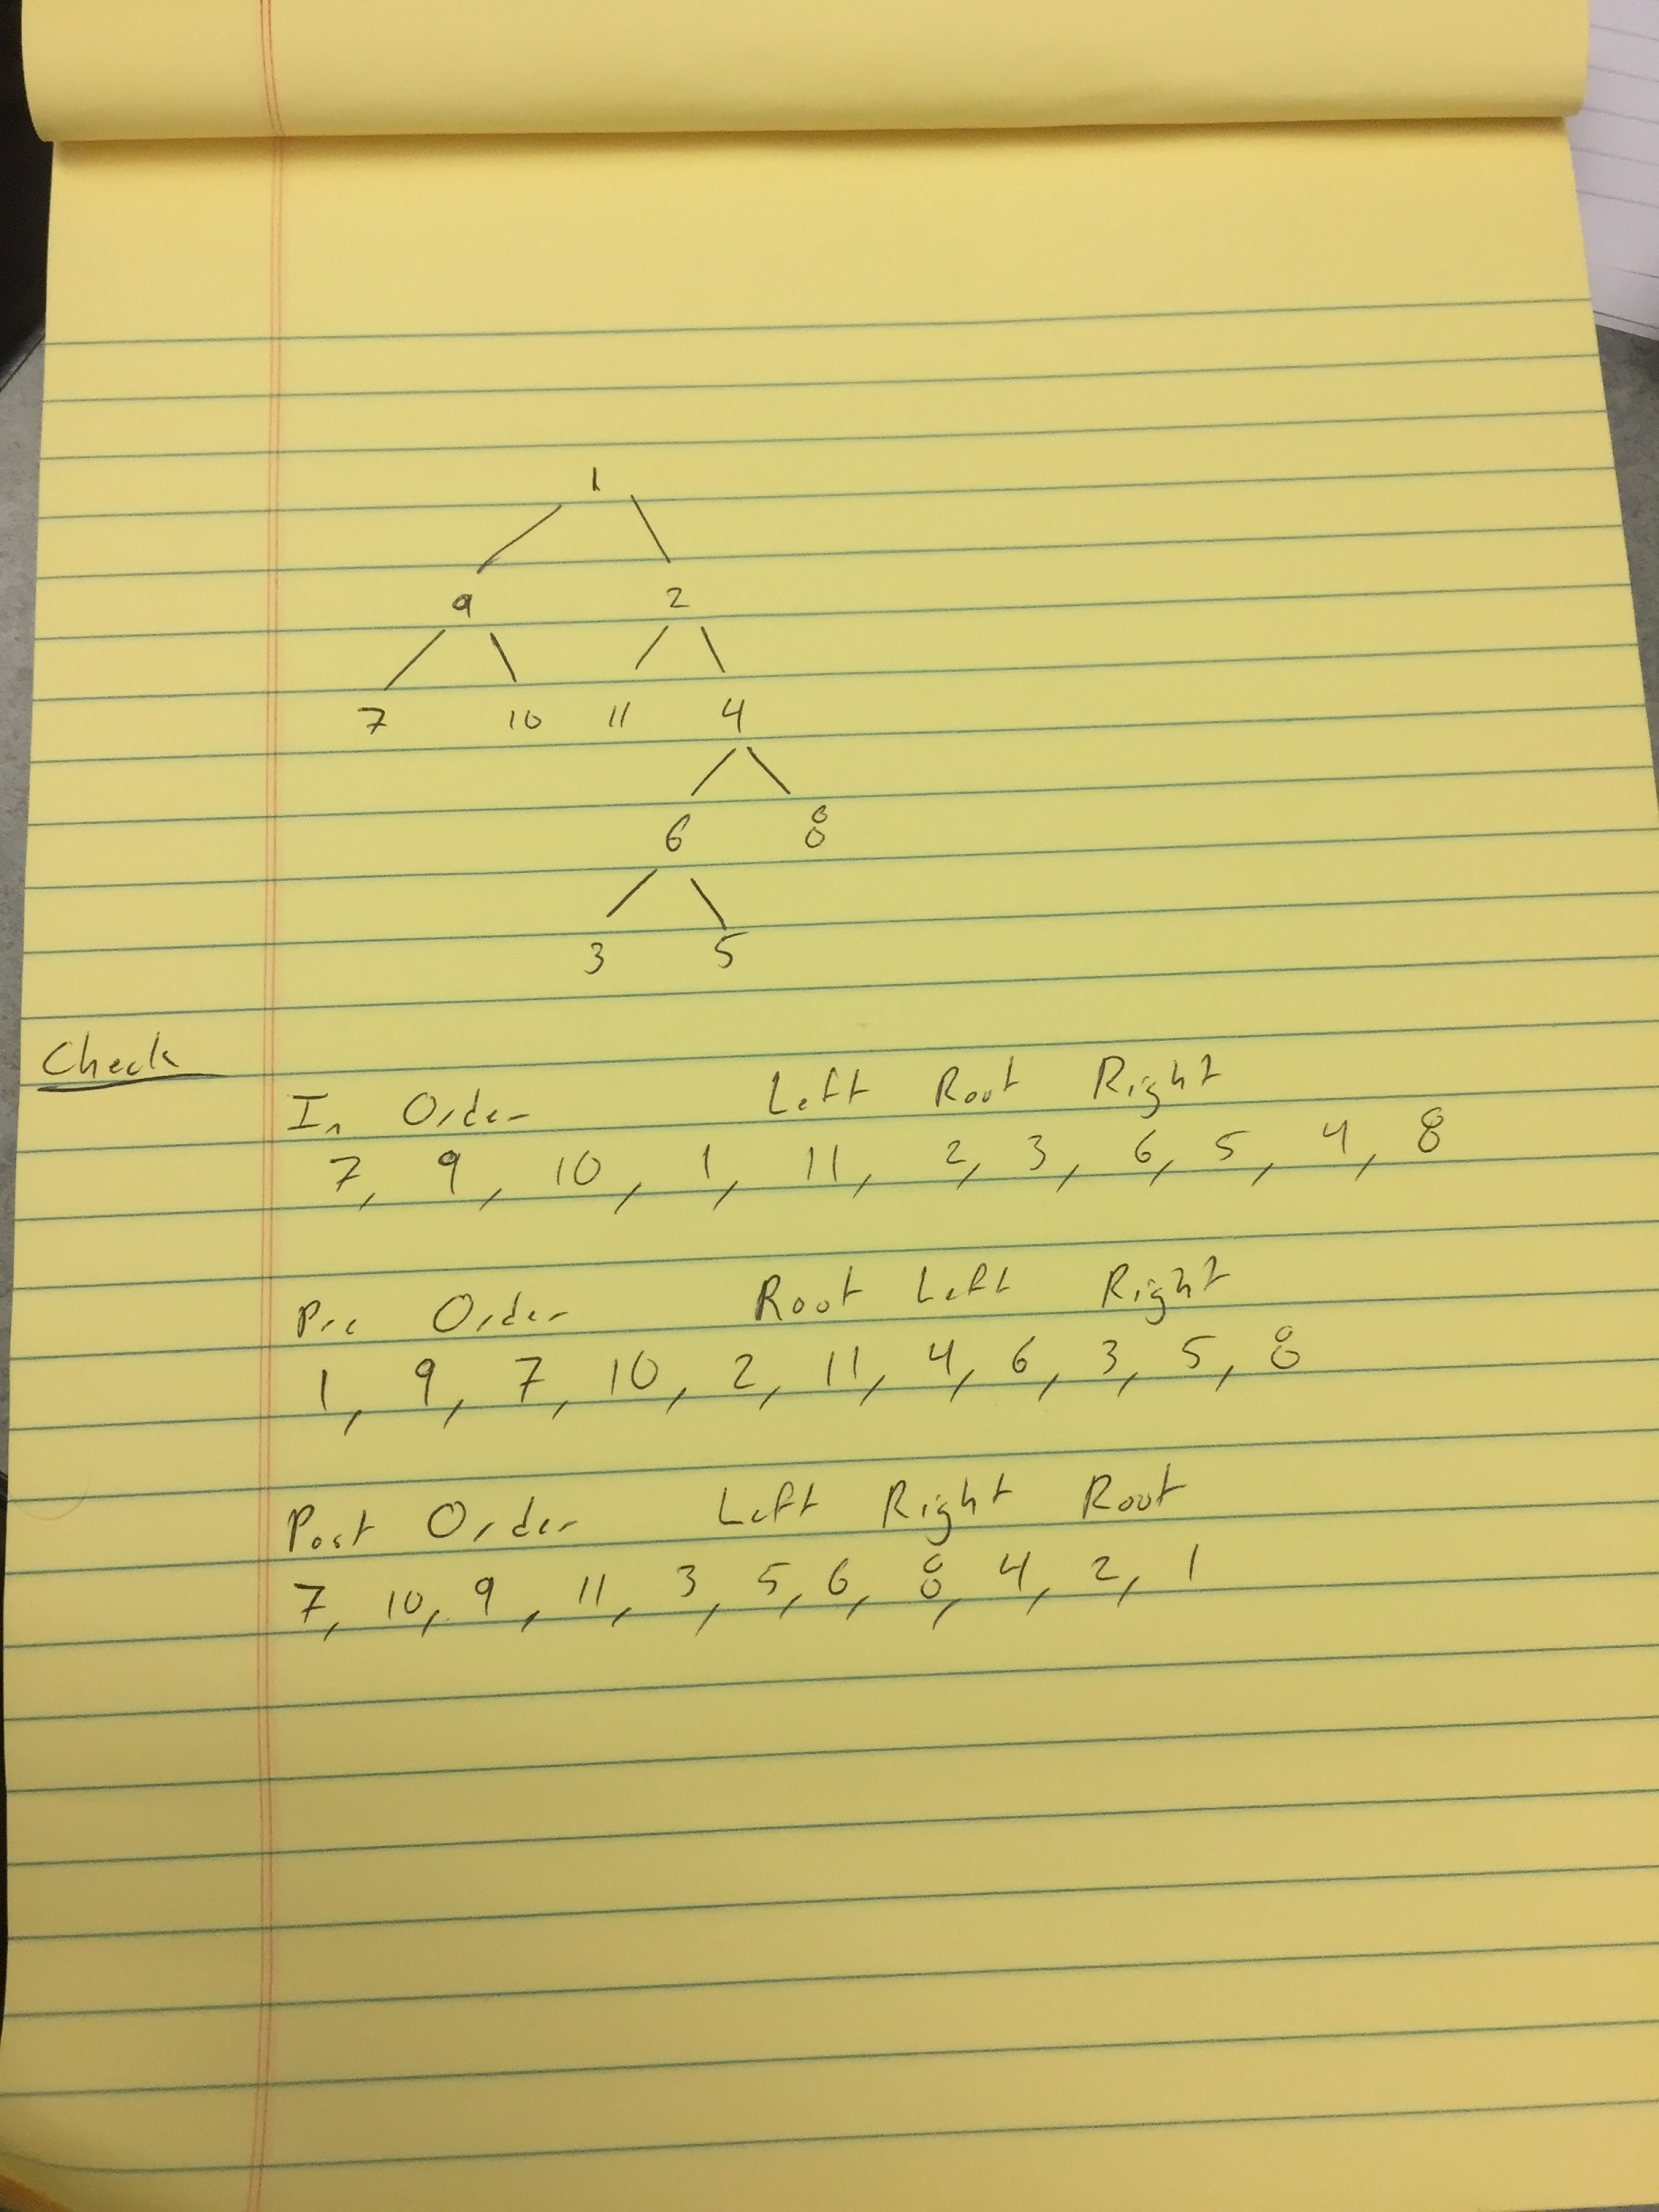 1
9 2
7 10 11 4
6 8
3 5
Check
In Order Left Root Right
7, 9, 10, 1, 11, 2, 3, 6, 5, 4, 8
Pre Order Root Left Right
1, 9, 7, 10, 2, 11, 4, 6, 3, 5, 8
Post Order Left Right Root
7, 10, 9, 11, 3, 5, 6, 8, 4, 2, 1